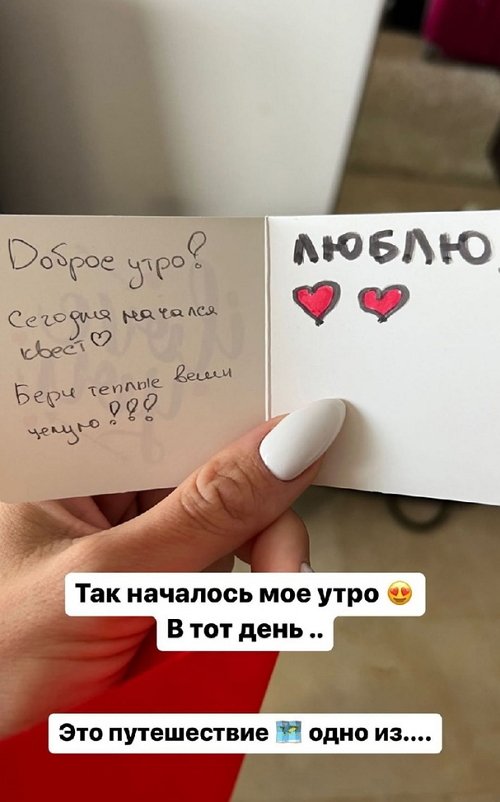 Доброе утро!
Сегодня начался
квест♡
Бери теплые вещи
целую!!!
ЛЮБЛЮ
Так началось мое утро 😍
В тот день ..
Это путешествие 🗺️ одно из....